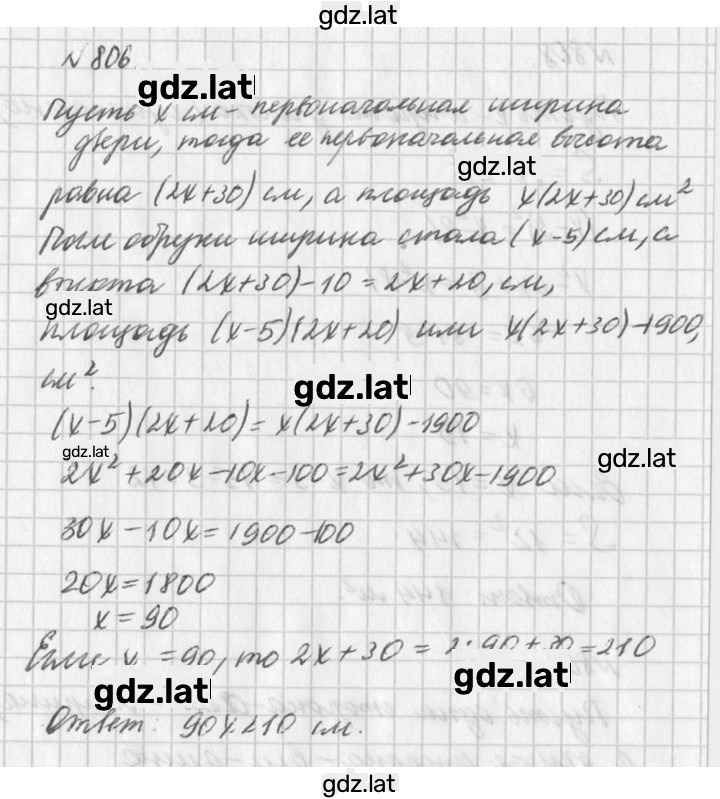 gdz.lat
№ 806
gdz.lat
Пусть x см - первоначальная ширина
двери, тогда ее первоначальная высота
gdz.lat
равна (2x+30) см, а площадь x(2x+30) см²
После обрезки ширина стала (x-5) см, а
высота (2x+30)-10=2x+20, см,
gdz.lat
площадь (x-5)(2x+20) или x(2x+30)-1900,
см².
gdz.lat
(x-5)(2x+20)=x(2x+30)-1900
gdz.lat
gdz.lat
2x²+20x-10x-100=2x²+30x-1900
30x-10x=1900-100
20x=1800
x=90
Если x =90, то 2x+30=2·90+30=210
gdz.lat
gdz.lat
Ответ: 90x210 см.
gdz.lat